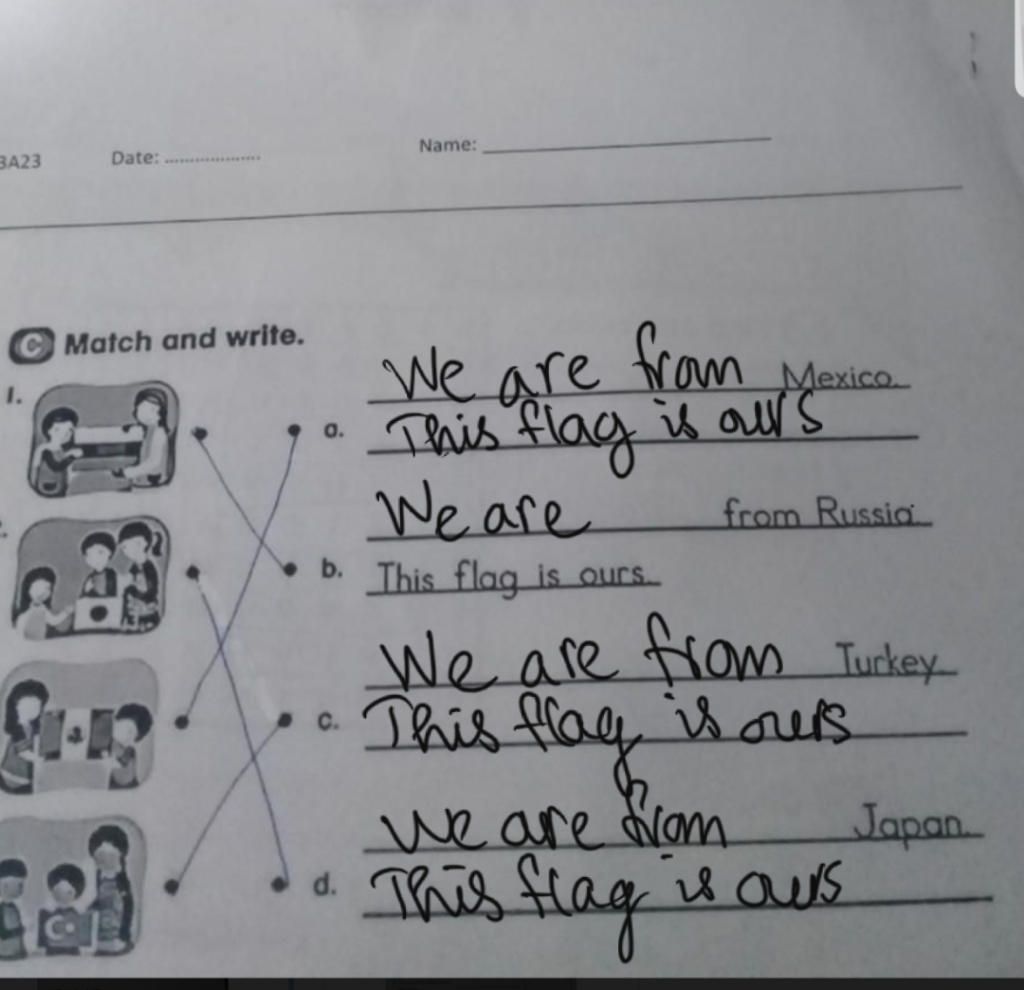 3A23 Date: ................... Name: ____________________
C Match and write.
1.
We are from Mexico.
a. This flag is ours
We are from Russia.
b. This flag is ours.
We are from Turkey
c. This flag is ours
We are from Japan.
d. This flag is ours